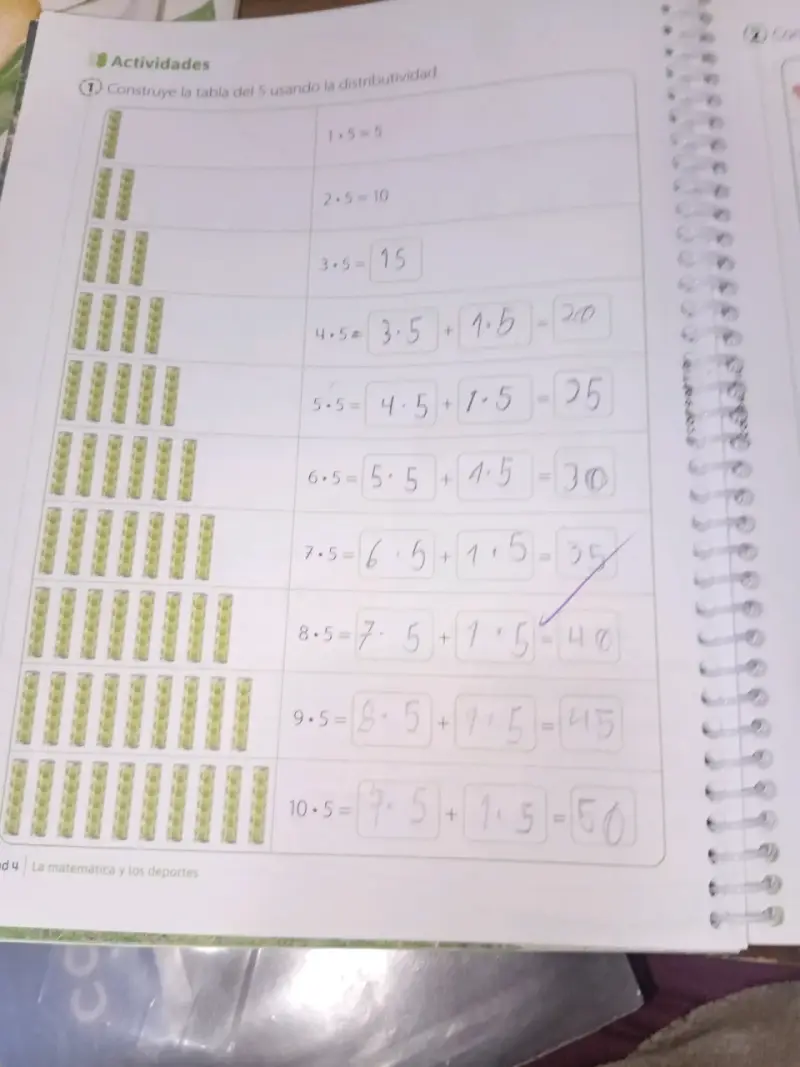 Actividades
1 Construye la tabla del 5 usando la distributividad.
1 • 5 = 5
2 • 5 = 10
3 • 5 = 15
4 • 5 = 3 · 5 + 1 · 5 = 20
5 • 5 = 4 · 5 + 1 · 5 = 25
6 • 5 = 5 · 5 + 1 · 5 = 30
7 • 5 = 6 · 5 + 1 · 5 = 35
8 • 5 = 7 · 5 + 1 · 5 = 40
9 • 5 = 8 · 5 + 1 · 5 = 45
10 • 5 = 7 · 5 + 1 · 5 = 50
d 4 La matemática y los deportes
2